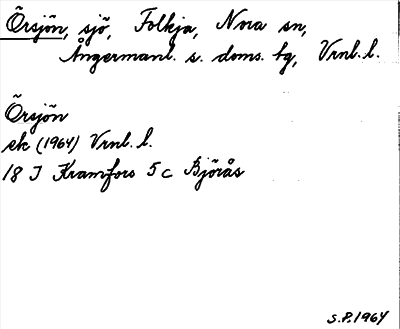 Örsjön, sjö, Folkja, Nora sn,
Ångermanl. s. doms. tg, Vrnl. l.
Örsjön
ek (1964) Vrnl. l.
18 J Kramfors 5 c Björås
S.P. 1964